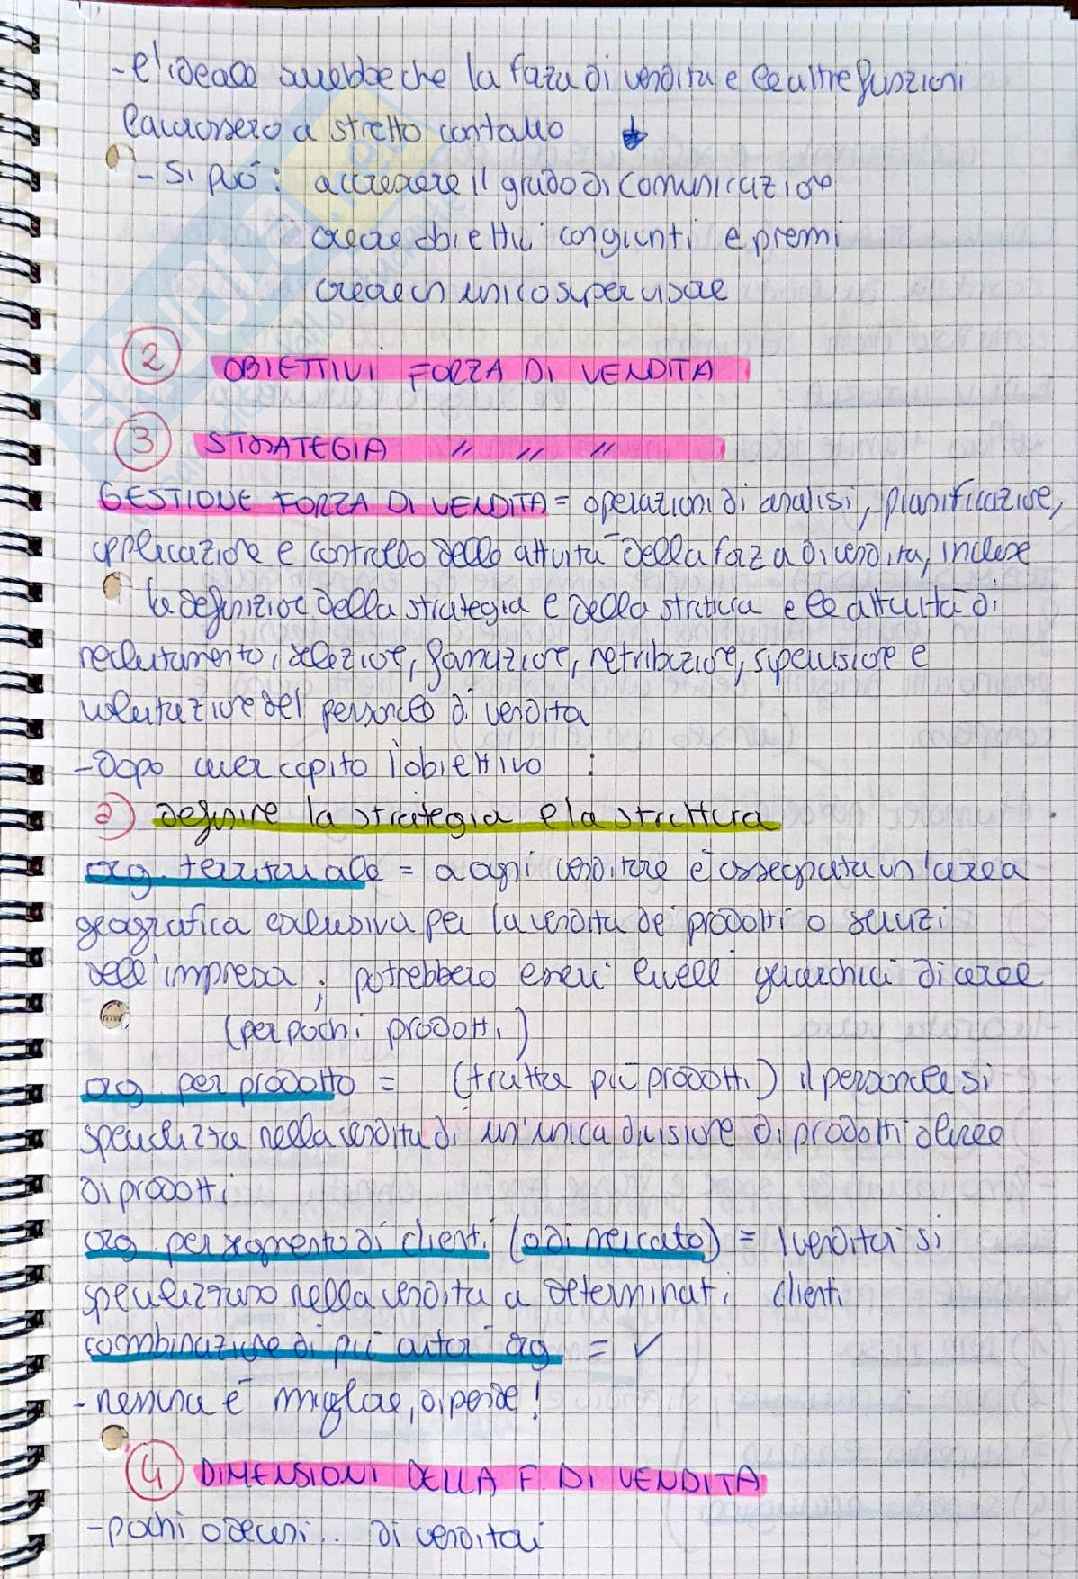 - l'ideale sarebbe che la forza di vendita e le altre funzioni
lavorassero a stretto contatto ↓
- Si può: accrescere il grado di comunicazione
creare obiettivi congiunti e premi
creare un unico supervisore
2 OBIETTIVI FORZA DI VENDITA
3 STRATEGIA " " "
GESTIONE FORZA DI VENDITA = operazioni di analisi, pianificazione,
applicazione e controllo delle attività della forza di vendita, incluse
la definizione della strategia e della struttura e le attività di
reclutamento, selezione, formazione, retribuzione, supervisione e
valutazione del personale di vendita
- Dopo aver capito l'obiettivo :
a) definire la strategia e la struttura
org. territoriale = a ogni venditore è assegnata un'area
geografica esclusiva per la vendita de prodotti o servizi
dell'impresa ; potrebbero esserci livelli gerarchici di aree
(per pochi prodotti)
org per prodotto = (tratta più prodotti) il personale si
specializza nella vendita di un'unica divisione di prodotti o linee
di prodotti
org per segmento di clienti (o di mercato) = I venditori si
specializzano nella vendita a determinati clienti
combinazione di più criteri org = ✓
- nessuna è migliore, dipende!
4 DIMENSIONI DELLA F. DI VENDITA
- pochi o decine.. di venditori